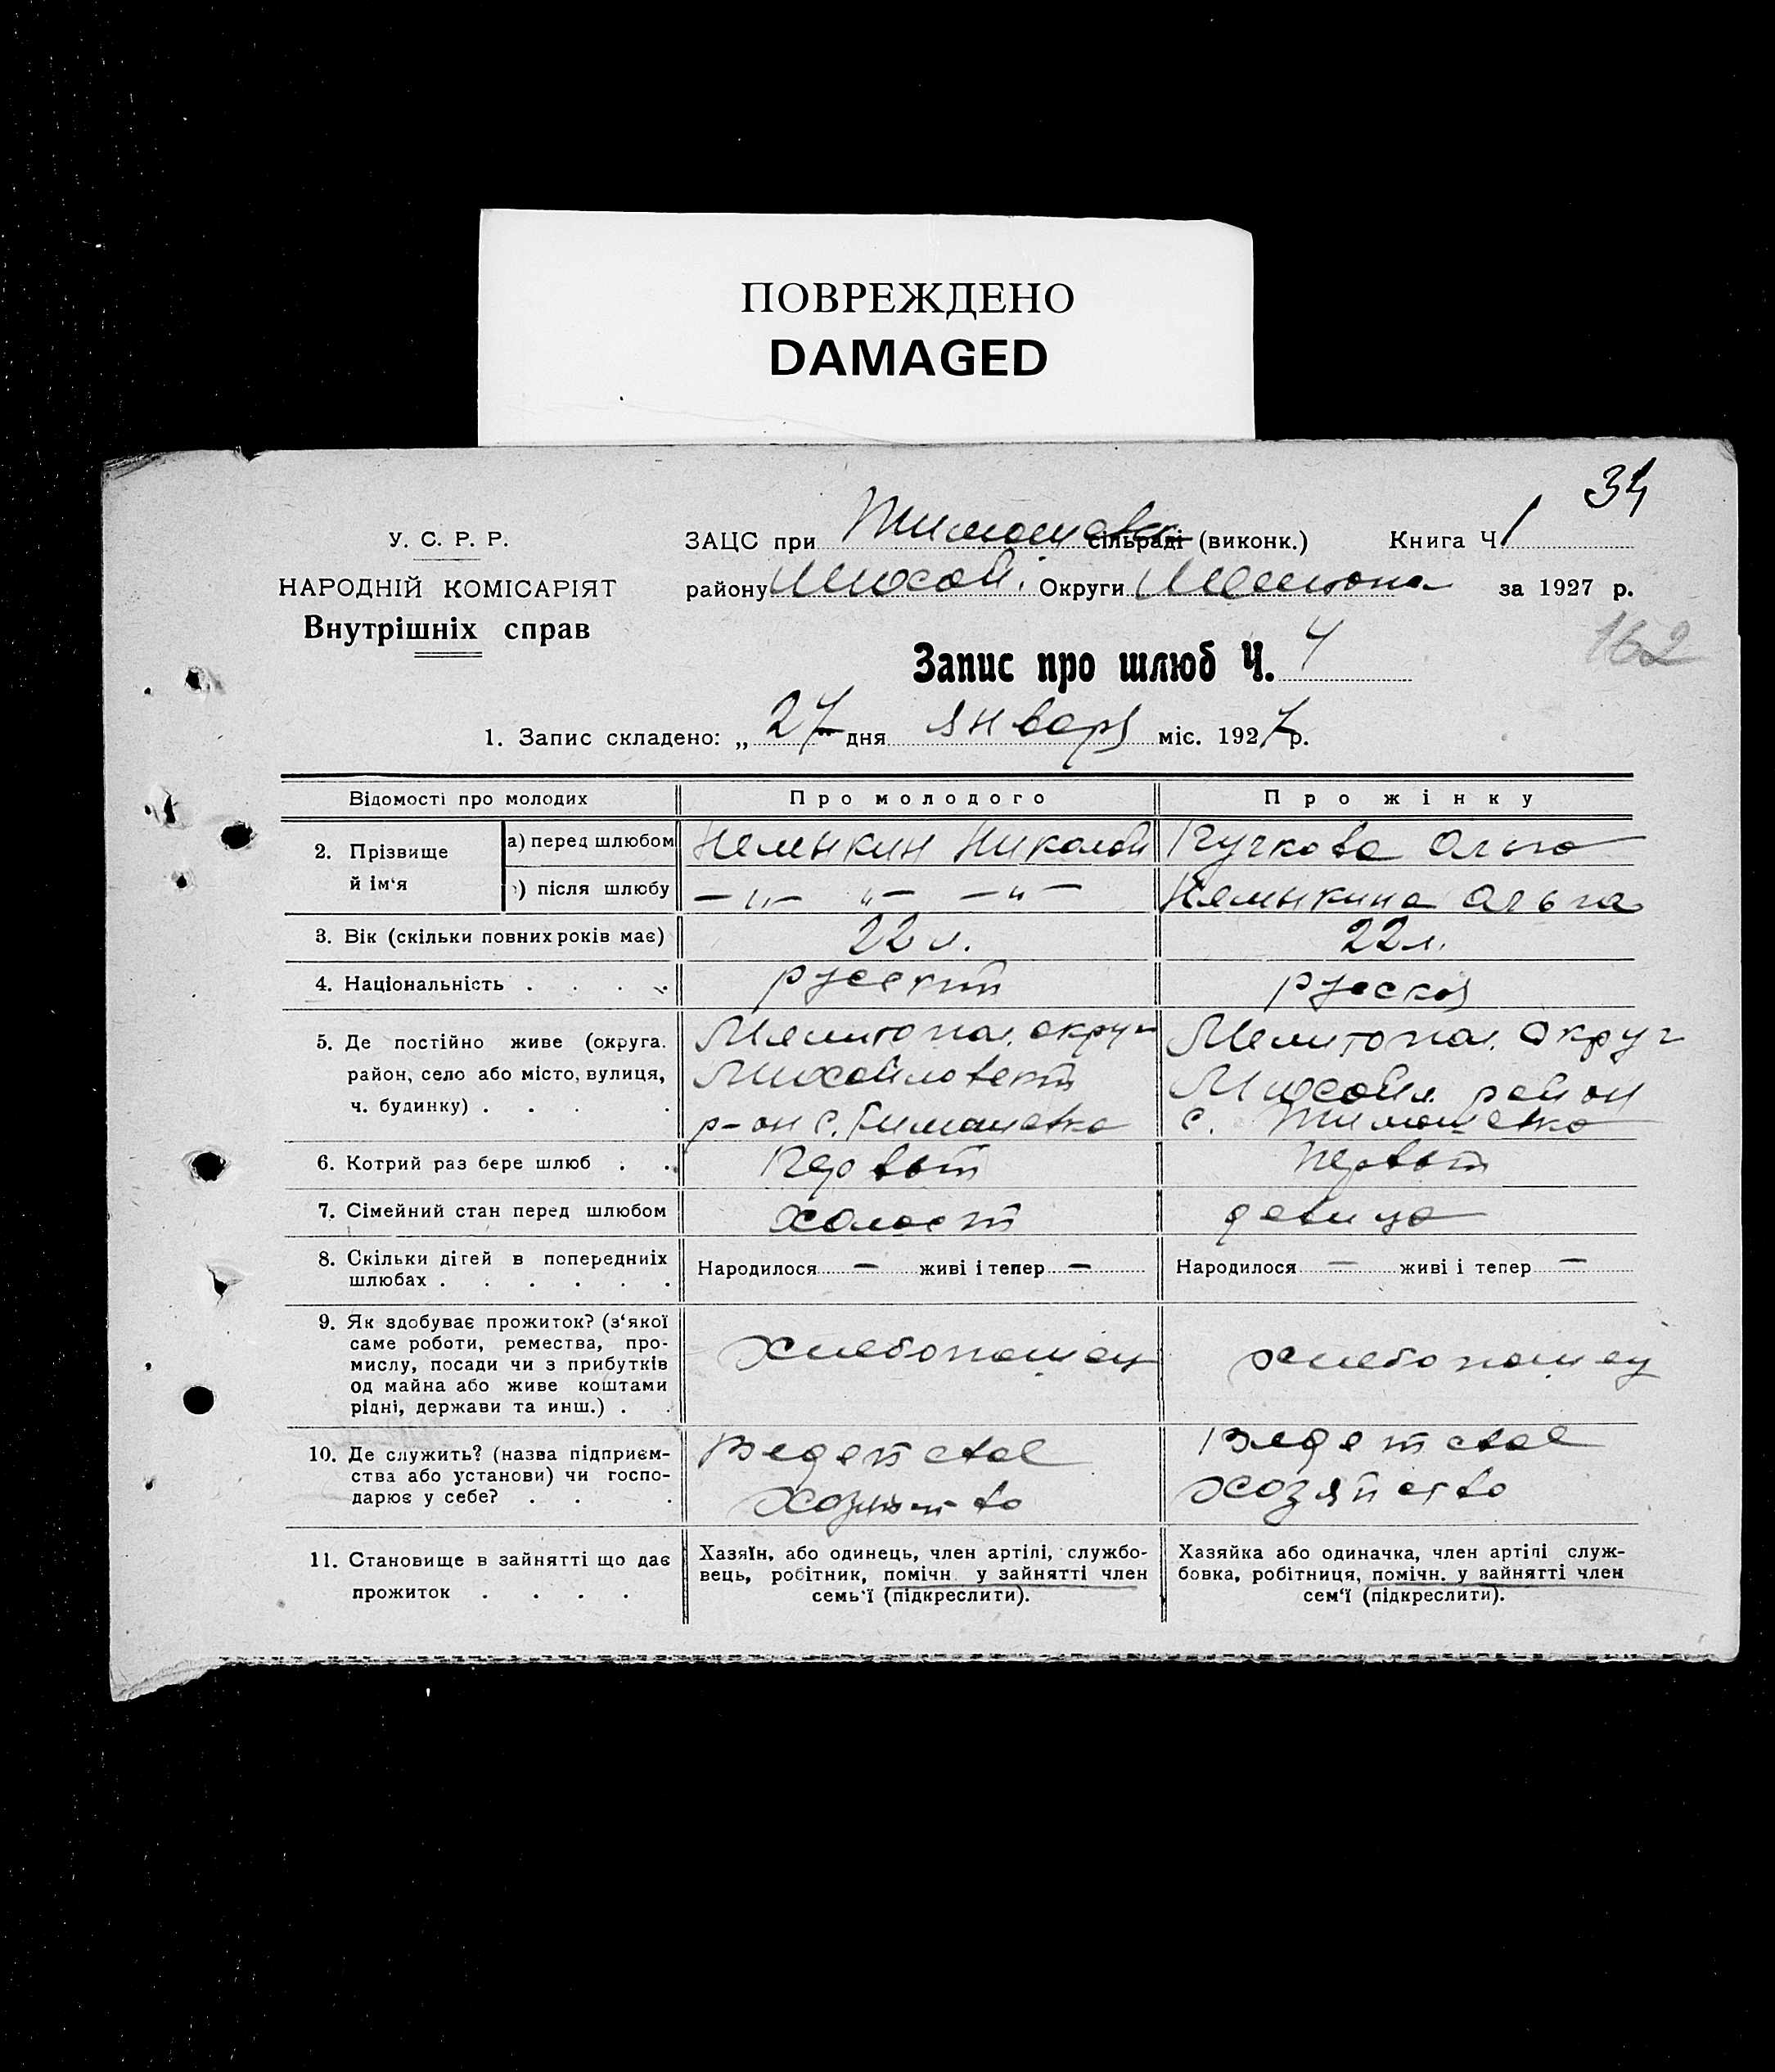 ПОВРЕЖДЕНО
DAMAGED
34
У. С. Р. Р.
НАРОДНІЙ КОМІСАРІЯТ
Внутрішніх справ
ЗАЦС при Тимошевск сільраді (виконк.) Книга Ч 1
району Михай. Округи Мелитопол за 1927 р.
162
Запис про шлюб Ч. 4
1. Запис складено: „ 27 " дня января міс. 1927 р.
Відомості про молодих Про молодого Про жінку
2. Прізвище й ім'я
а) перед шлюбом Немыкин Николай Кучкова Ольга
) після шлюбу — „ — „ — — „ — Немыкина Ольга
3. Вік (скільки повних років має) 22 л. 22 л.
4. Національність . . . . русский руская
5. Де постійно живе (округа, район, село або місто, вулиця, ч. будинку) . . . .
Мелитопол. округ
Михайловский
р-он с. Тимашевка
Мелитопол. округ
Михайл. район
с. Тимошевка
6. Котрий раз бере шлюб . . Первый Первый
7. Сімейний стан перед шлюбом холост девица
8. Скільки дігей в попередніх шлюбах . . . . . .
Народилося — живі і тепер — Народилося — живі і тепер —
9. Як здобуває прожиток? (з'якої
саме роботи, ремества, про-
мислу, посади чи з прибутків
од майна або живе коштами
рідні, держави та инш.) . .
Хлебопашец хлебопашец
10. Де служить? (назва підприєм-
ства або установи) чи госпо-
дарює у себе? . . .
Ведет свое
хозяйство
Ведет свое
хозяйство
11. Становище в зайнятті що дає
прожиток . . . .
Хазяїн, або одинець, член артілі, службо-
вець, робітник, помічн. у зайнятті член
семь'ї (підкреслити).
Хазяйка або одиначка, член артілі служ-
бовка, робітниця, помічн. у зайнятті член
сем'ї (підкреслити).